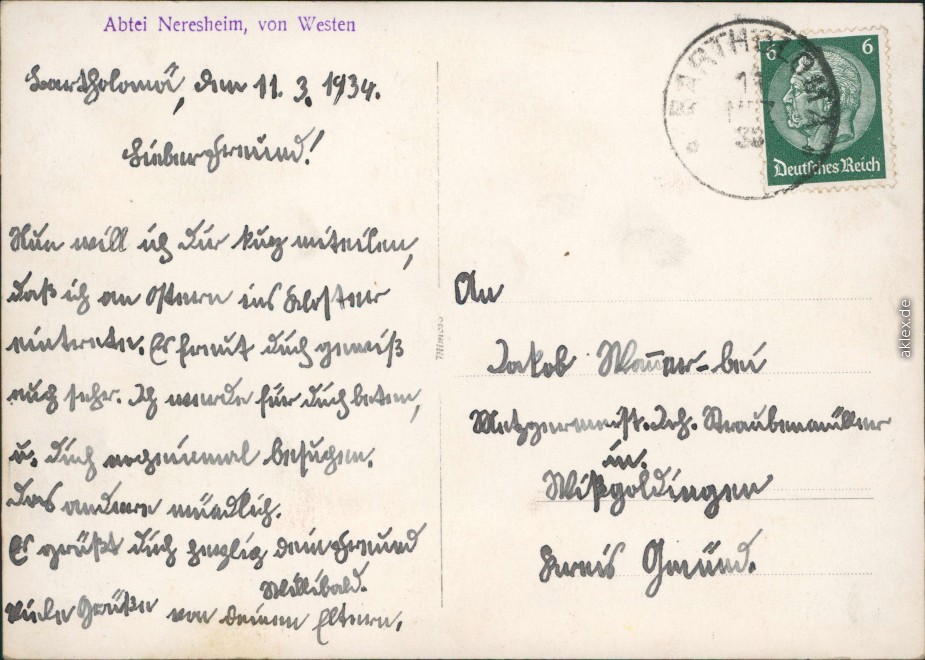 Abtei Neresheim, von Westen
Bartholomä, den 11. 3. 1934.
Lieber Freund!
Nun will ich Dir kurz mitteilen,
daß ich an Ostern ins Kloster
eintrete. Es freut Dich gewiß
auch sehr. Ich werde für Dich beten,
u. Dich auch einmal besuchen.
Das andere mündlich.
Es grüßt Dich herzlich Dein Freund
Willibald.
Viele Grüße von deinen Eltern.
BARTHOLOMÄ
6 6
Deutsches Reich
An
Jakob bei
Metzgermeist. Joh. Straubenmüller
in.
Wißgoldingen
Kreis Gmünd.
aklex.de